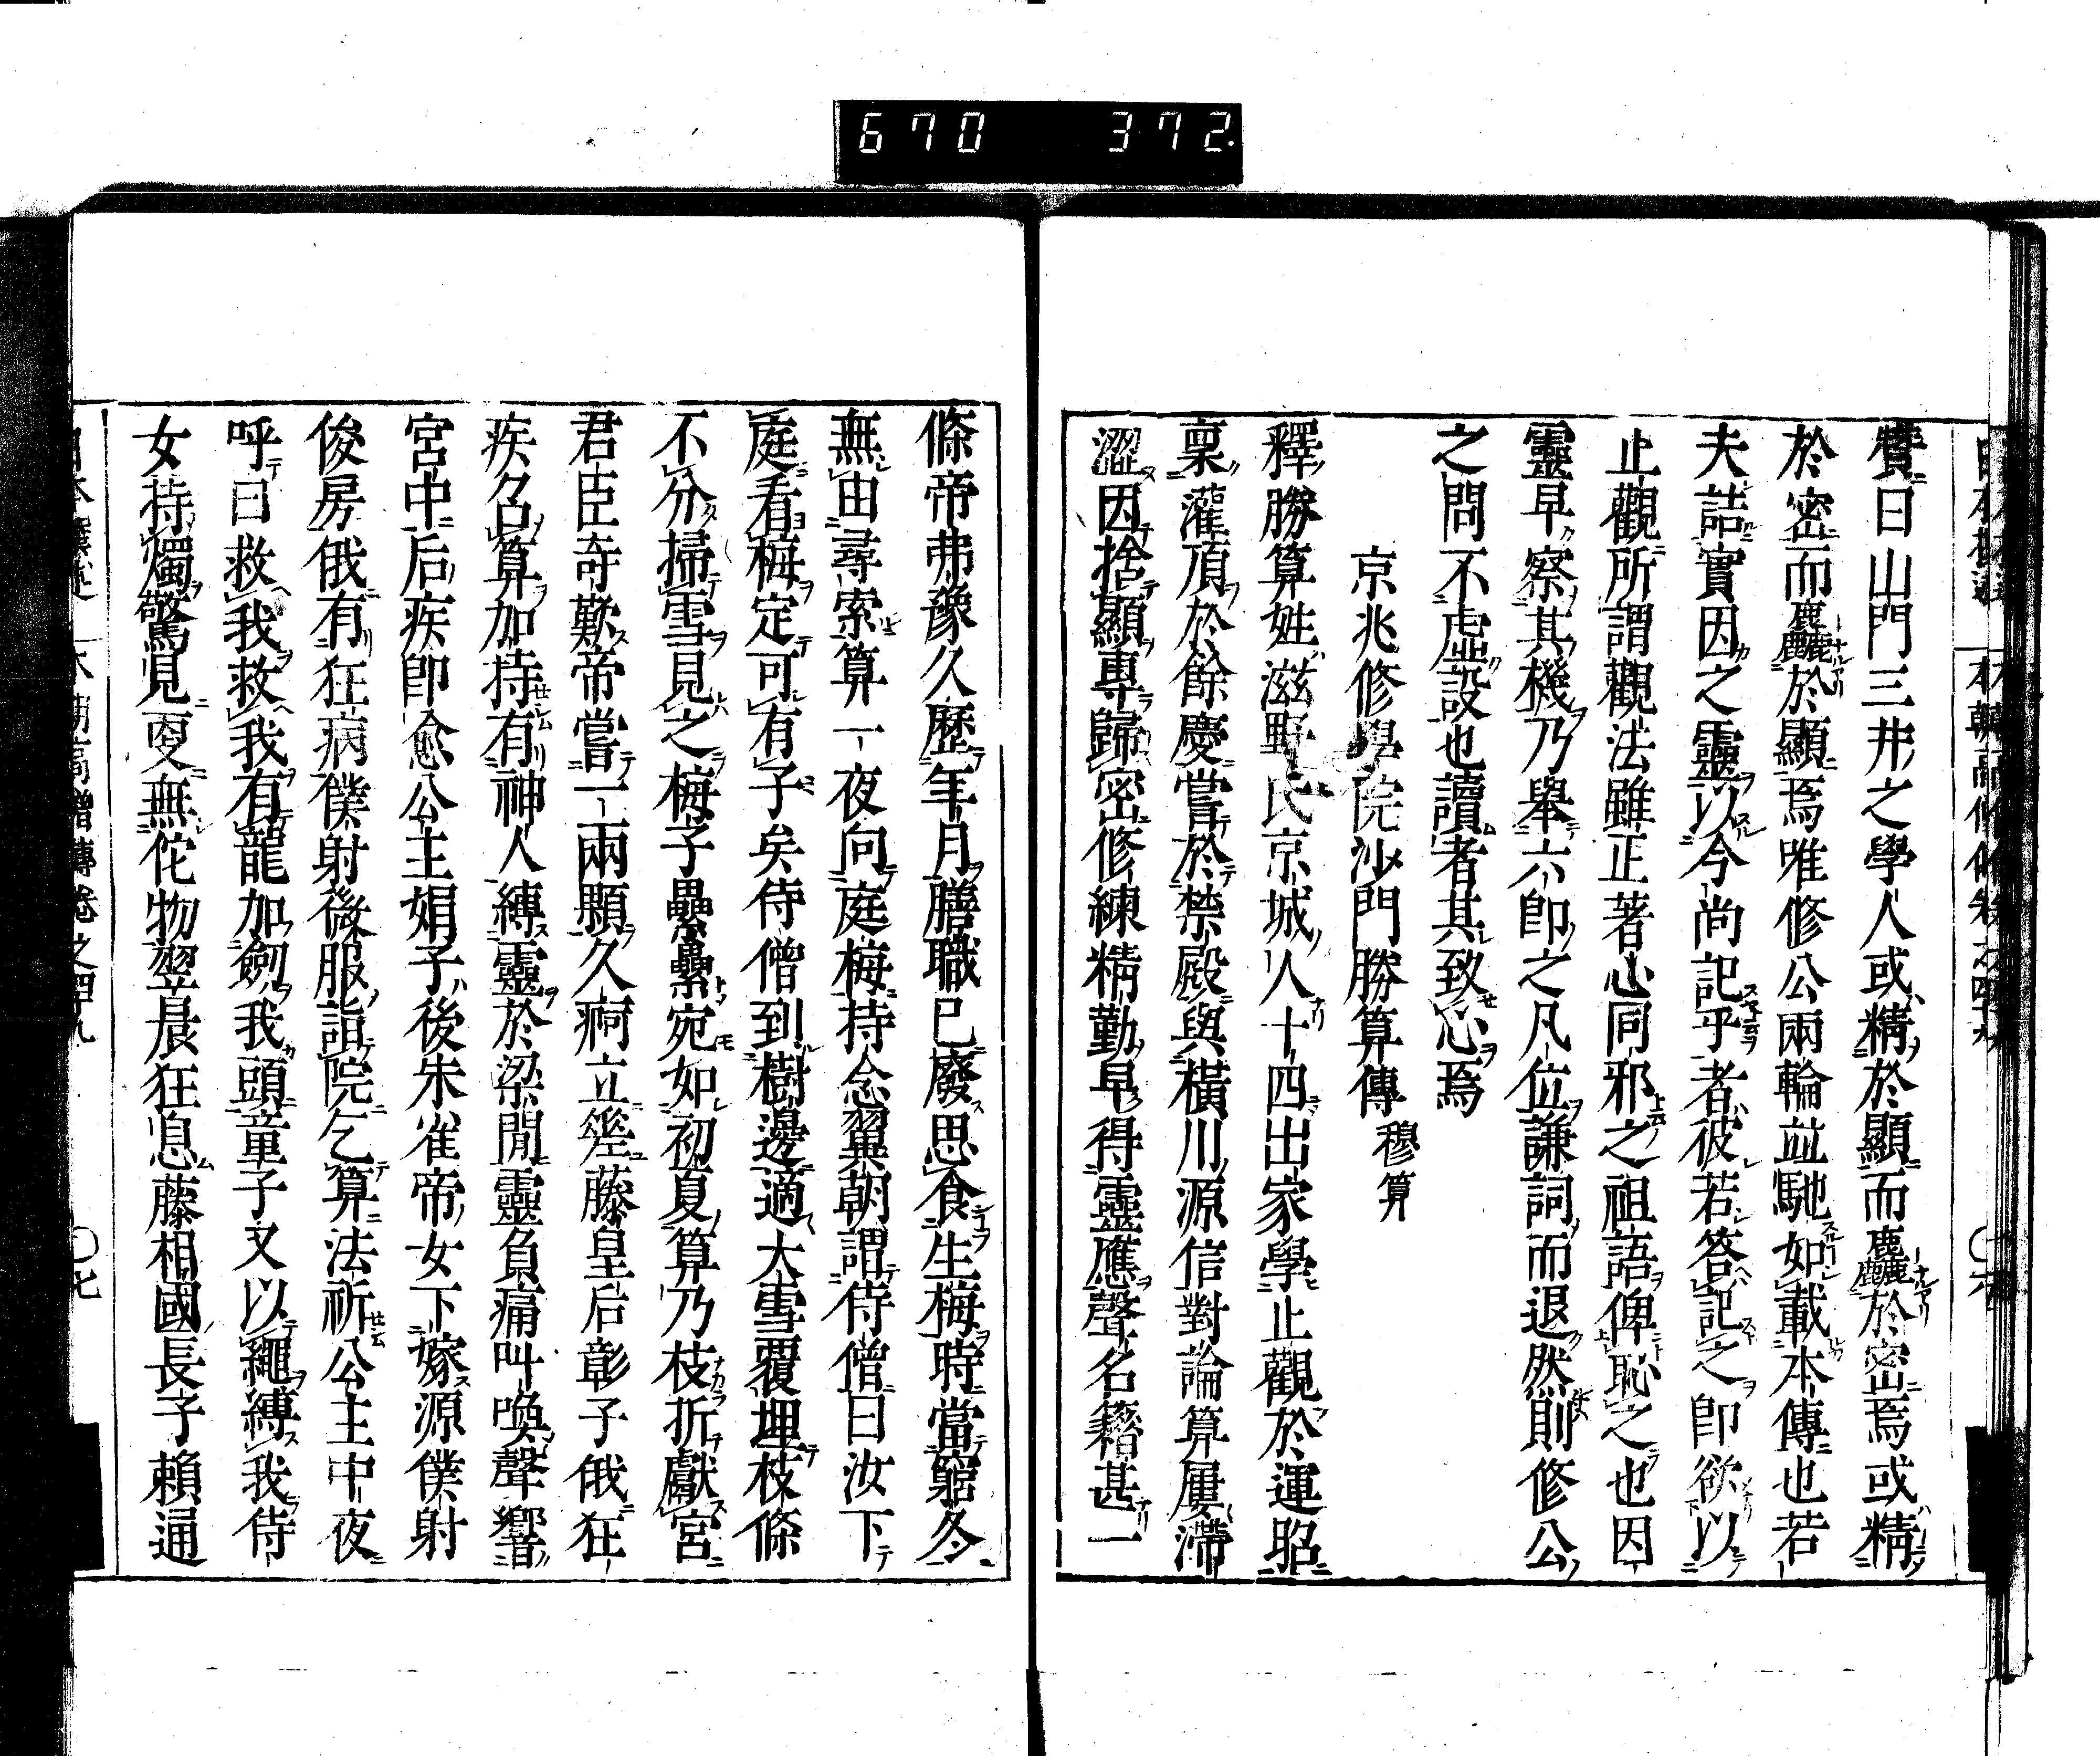 670 372.
賛曰山門三井之學人或精於顯而麤於密焉或精
於密而麤於顯焉唯修公兩輪並馳如載本傳也若
夫詰實因之靈以今尚記乎者彼若答記之卽欲以
止觀所謂觀法雖正著心同邪之祖語俾恥之也因
靈早察其機乃舉六卽之凡位謙詞而退然則修公
之問不虛設也讀者其致心焉
京兆修學院沙門勝算傳 穆算
釋勝算姓滋野氏京城人十四出家學止觀於運昭
稟灌頂於餘慶嘗於禁殿與橫川源信對論算屢滯
澀因捨顯專歸密修練精勤早得靈應聲名籍甚一
條帝弗豫久歷年月膳職已廢思食生梅時當窮冬
無由尋索算一夜向庭梅持念翼朝謂侍僧曰汝下
庭看梅定可有子矣侍僧到樹邊適大雪覆埋枝條
不分掃雪見之梅子纍纍宛如初夏算乃枝折獻宮
君臣奇歎帝嘗一兩顆久痾立瘥藤皇后彰子俄狂
疾召算加持有神人縛靈於梁閒靈負痛叫喚聲響
宮中后疾卽愈公主娟子後朱雀帝女下嫁源僕射
俊房俄有狂病僕射微服詣院乞算法祈公主中夜
呼曰救我救我有龍加劒我頭童子又以繩縛我侍
女持燭驚見更無佗物翌晨狂息藤相國長子賴通
日本撰述 本朝高僧傳卷之四十九 〇七